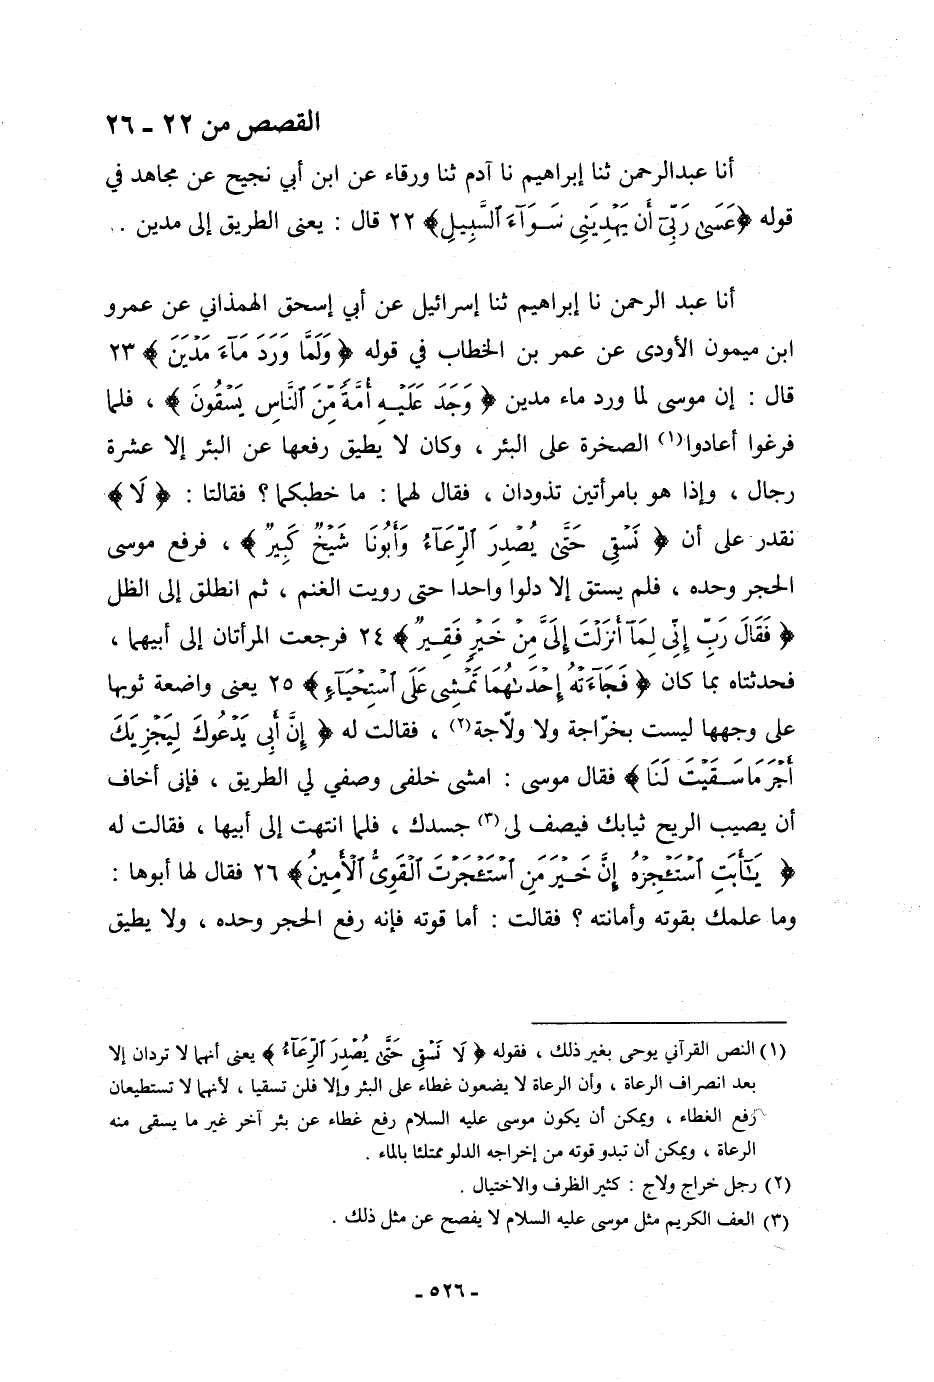 القصص من ٢٢ - ٢٦
أنا عبدالرحمن ثنا إبراهيم نا آدم ثنا ورقاء عن ابن أبي نجيح عن مجاهد في
قوله ﴿عَسَىٰ رَبِّىٓ أَن يَهْدِيَنِى سَوَآءَ ٱلسَّبِيلِ﴾ ٢٢ قال : يعنى الطريق إلى مدين ..
أنا عبد الرحمن نا إبراهيم ثنا إسرائيل عن أبي إسحق الهمذاني عن عمرو
ابن ميمون الأودى عن عمر بن الخطاب في قوله ﴿ وَلَمَّا وَرَدَ مَآءَ مَدْيَنَ ﴾ ٢٣
قال : إن موسى لما ورد ماء مدين ﴿ وَجَدَ عَلَيْهِ أُمَّةً مِّنَ ٱلنَّاسِ يَسْقُونَ ﴾ ، فلما
فرغوا أعادوا(١) الصخرة على البئر ، وكان لا يطيق رفعها عن البئر إلا عشرة
رجال ، وإذا هو بامرأتين تذودان ، فقال لهما : ما خطبكما ؟ فقالتا : ﴿ لَا ﴾
نقدر على أن ﴿ نَسْقِى حَتَّىٰ يُصْدِرَ ٱلرِّعَآءُ وَأَبُونَا شَيْخٌ كَبِيرٌ ﴾ ، فرفع موسى
الحجر وحده ، فلم يستق إلا دلوا واحدا حتى رويت الغنم ، ثم انطلق إلى الظل
﴿ فَقَالَ رَبِّ إِنِّى لِمَآ أَنزَلْتَ إِلَىَّ مِنْ خَيْرٍ فَقِيرٌ ﴾ ٢٤ فرجعت المرأتان إلى أبيهما ،
فحدثتاه بما كان ﴿ فَجَآءَتْهُ إِحْدَىٰهُمَا تَمْشِى عَلَى ٱسْتِحْيَآءٍ ﴾ ٢٥ يعنى واضعة ثوبها
على وجهها ليست بخرّاجة ولا ولاّجة(٢) ، فقالت له ﴿ إِنَّ أَبِى يَدْعُوكَ لِيَجْزِيَكَ
أَجْرَ مَا سَقَيْتَ لَنَا ﴾ فقال موسى : امشى خلفى وصفي لي الطريق ، فإنى أخاف
أن يصيب الريح ثيابك فيصف لى(٣) جسدك ، فلما انتهت إلى أبيها ، فقالت له
﴿ يَـٰٓأَبَتِ ٱسْتَـْٔجِرْهُ إِنَّ خَيْرَ مَنِ ٱسْتَـْٔجَرْتَ ٱلْقَوِىُّ ٱلْأَمِينُ ﴾ ٢٦ فقال لها أبوها :
وما علمك بقوته وأمانته ؟ فقالت : أما قوته فإنه رفع الحجر وحده ، ولا يطيق
(١) النص القرآني يوحى بغير ذلك ، فقوله ﴿ لَا نَسْقِى حَتَّىٰ يُصْدِرَ ٱلرِّعَآءُ ﴾ يعنى أنهما لا تردان إلا
بعد انصراف الرعاة ، وأن الرعاة لا يضعون غطاء على البئر وإلا فلن تسقيا ، لأنهما لا تستطيعان
رفع الغطاء ، ويمكن أن يكون موسى عليه السلام رفع غطاء عن بئر آخر غير ما يسقى منه
الرعاة ، ويمكن أن تبدو قوته من إخراجه الدلو ممتلئا بالماء .
(٢) رجل خراج ولاج : كثير الظرف والاحتيال .
(٣) العف الكريم مثل موسى عليه السلام لا يفصح عن مثل ذلك .
- ٥٢٦ -